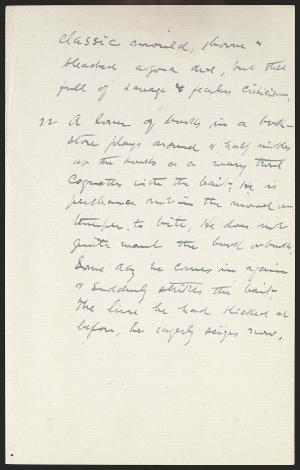 classic mould, shorn &
bleached a good deal, but still
full of savage & fearless criticism.
22 A lover of books in a book-
store plays around & half nibbles
at the books as a wary trout
coquettes with the bait; He is
perchance not in the mood or
temper to bite, He does not
quite want the book or books,
Some day he comes in again
& suddenly strikes the bait,
The lure he had kicked at
before, he eagerly seizes now.